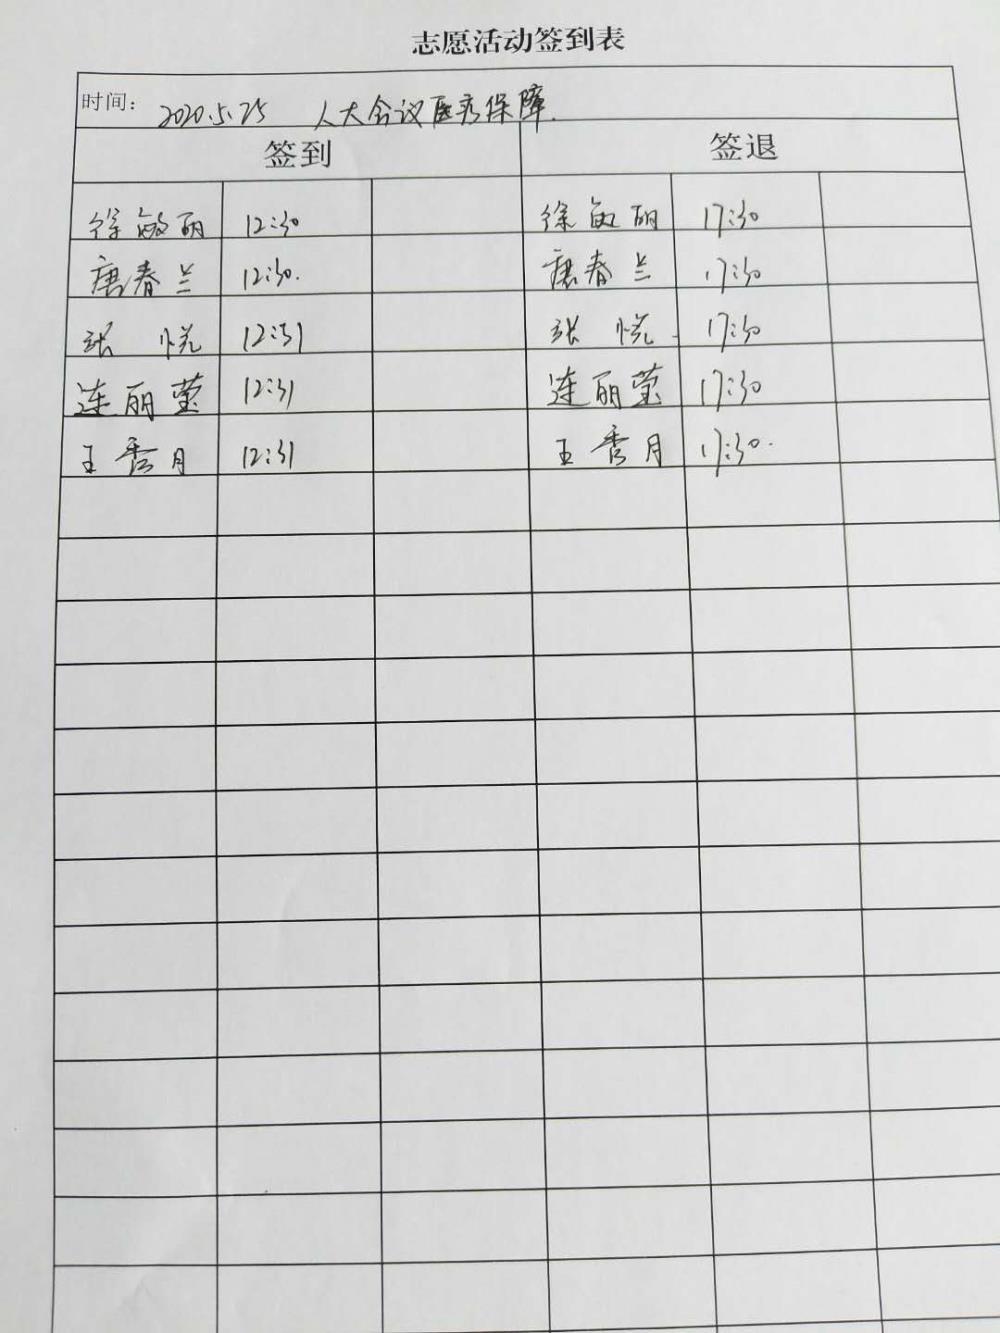 志愿活动签到表
时间： 2020.5.25 人大会议医疗保障.
签到 签退
徐敏丽 12:30 徐敏丽 17:30
唐春兰 12:30. 唐春兰 17:30
张悦 12:31 张悦 17:30
连丽莹 12:31 连丽莹 17:30
王秀月 12:31 王秀月 17:30.